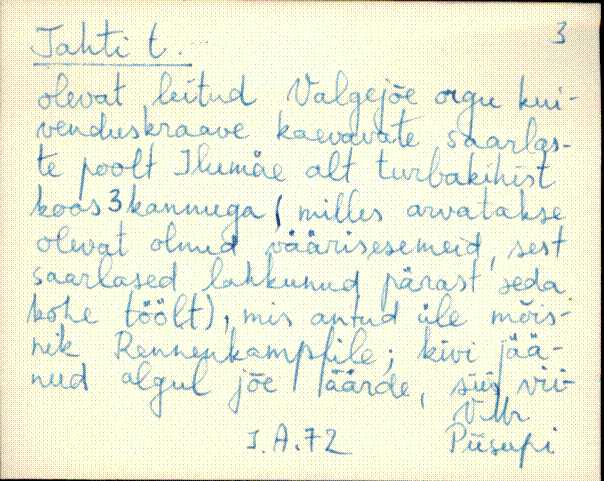 Tahti t.
3
olevat leitud Valgejõe orgu kui-
venduskraave kaevavate saarlas-
te poolt Ilumäe alt turbakihist
koos 3 kannuga (milles arvatakse
olevat olnud väärisesemeid, sest
saarlased lahkunud pärast seda
kohe töölt), mis antud üle mõis-
nik Rennenkampfile; kivi jää-
nud algul jõe äärde, siis vii-
I.A.72
Piisupi